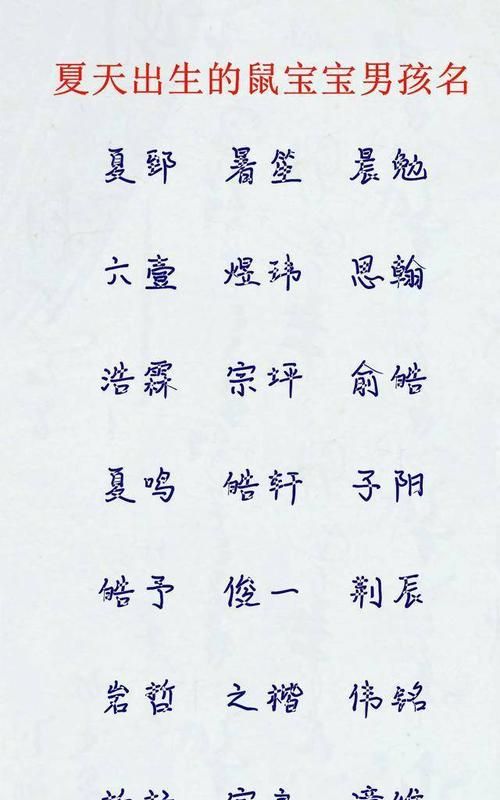 夏天出生的鼠宝宝男孩名
夏郅 暑笙 晨勉
六壹 煜玮 思翰
浩霖 宗坪 俞皓
夏鸣 皓轩 子阳
皓予 俊一 荆辰
岩哲 之楷 伟铭